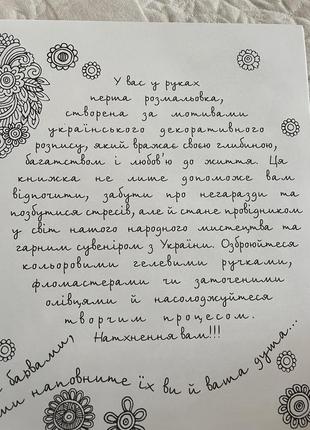 У вас у руках
перша розмальовка,
створена за мотивами
українського декоративного
розпису, який вражає своєю глибиною,
багатством і любов'ю до життя. Ця
книжка не лише допоможе вам
відпочити, забути про негаразди та
позбутися стресів, але й стане провідником
у світ нашого народного мистецтва та
гарним сувеніром з України. Озброюйтеся
кольоровими гелевими ручками,
фломастерами чи заточеними
олівцями й насолоджуйтеся
творчим процесом.
Натхнення вам!!!
барвами,
наповните їх ви й ваша душа...